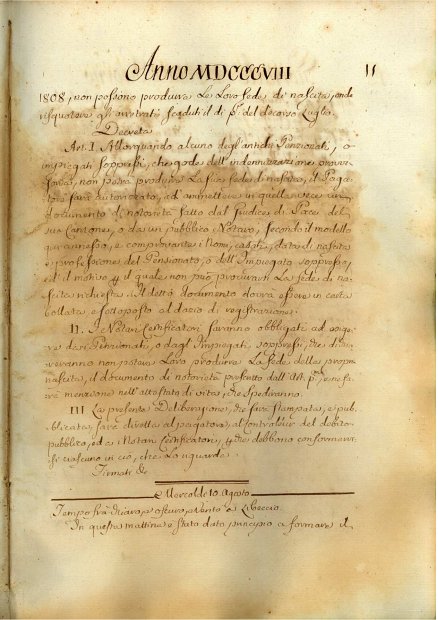 Anno MDCCCVIII
11
1808, non possono produrre Le Loro fede di nascita, onde
risquotere gli arretrati scaduti il dì p.º del decorso Luglio.
Decreta
Art. I. Allorquando alcuno degl'antichi Penzionati, o
impiegati soppressi, che gode dell'indennizzazione
non possa produrre La sua fede di nascita, il Paga-
tore sarà autorizzato, ad ammettere in quella vece un
documento di notorietà fatto dal Giudice di Pace del
suo Cantone, o da un pubblico Notaro, secondo il modello
qui annesso, e comprovante i Nomi, casato, data di nascita
e professione del Pensionato, o dell'Impiegato soppresso,
ed il motivo per il quale non può produrvisi La fede di na-
scita richiesta. Il detto documento dovrà essere in carta
bollata e sottoposto al dazio di registrazione.
II. I Notari Certificatori saranno obbligati ad esigere
dai Pensionati, o dagl'Impiegati soppressi, che dichia-
reranno non potere Loro produrre La fede della propria
nascita, il documento di notorietà prescritto dall'Art. p.º, e ne fa-
ranno menzione nell'attestato di vita, che spediranno.
III La presente Deliberazione, che sarà stampata, e pub-
blicata, sarà diretta al pagatore, al controllore del debito
pubblico, ed ai Notari Certificatori, che debbono conformarvi-
si ciascuno in ciò, che Lo riguarda.
Firmati &
Mercoldì 10. Agosto
Tempo frà chiaro, e oscuro, e Vento a Libeccio.
In questa mattina è stato dato principio a formare il